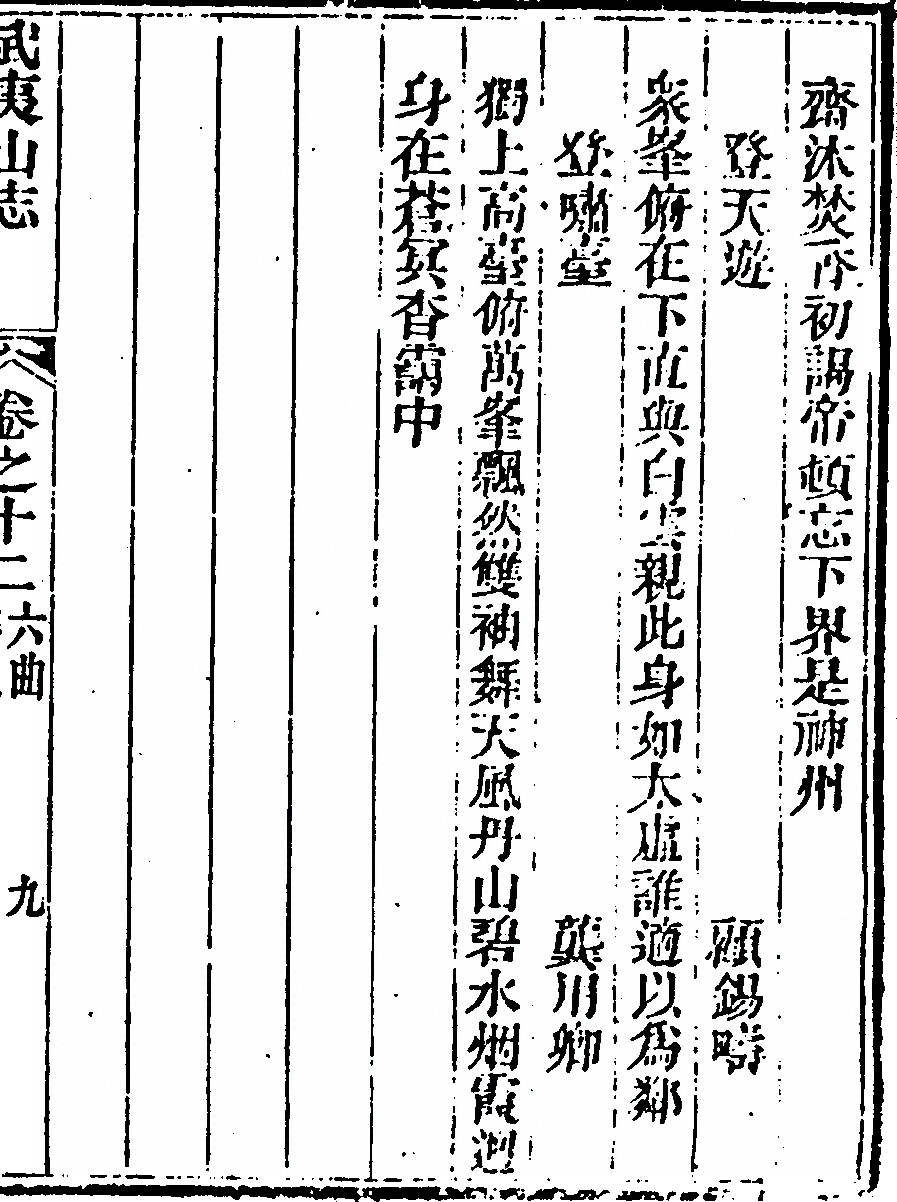 齋沐焚香初謁帝頓忘下界是神州
登天遊 顧錫疇
衆峯俯在下直與白雲親此身如太虛誰適以爲鄰
登嘯臺 龔用卿
獨上高臺俯萬峯飄然雙袖舞天風丹山碧水烟霞迥
身在蒼冥杳靄中
武夷山志 卷之十二 六曲 九